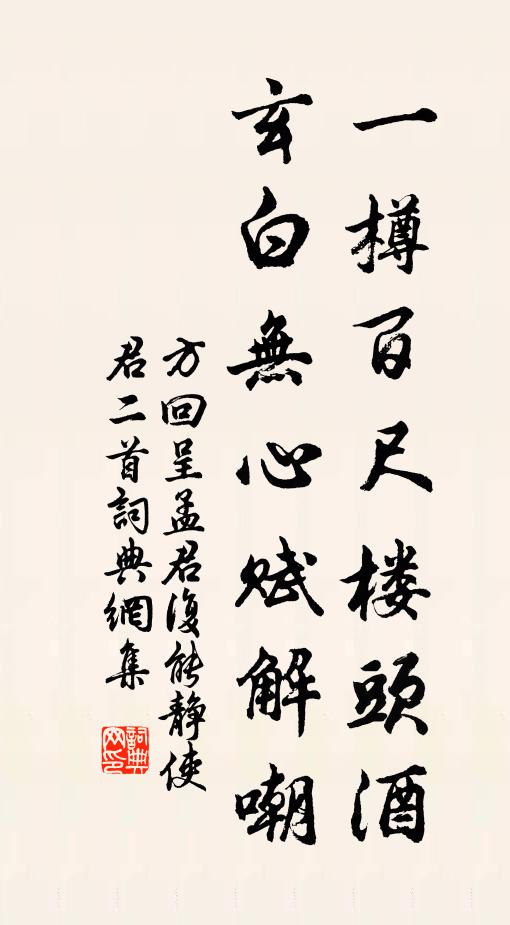 一樽百尺楼頭酒
玄白無心赋解嘲
方回呈孟君復能静使
君二首詞典網集
詞典网印